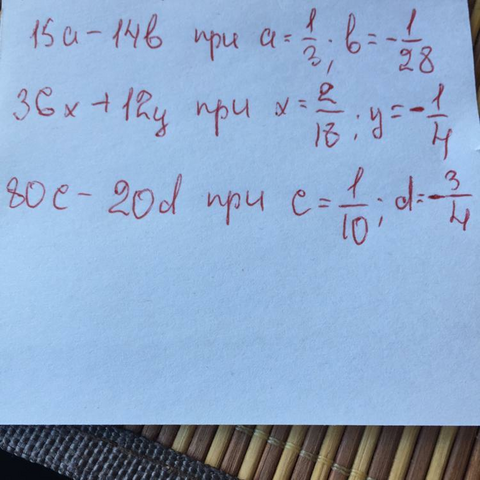 15a - 14b при a = 1/3; b = -1/28
36x + 12y при x = 2/18; y = -1/4
80c - 20d при c = 1/10; d = -3/4